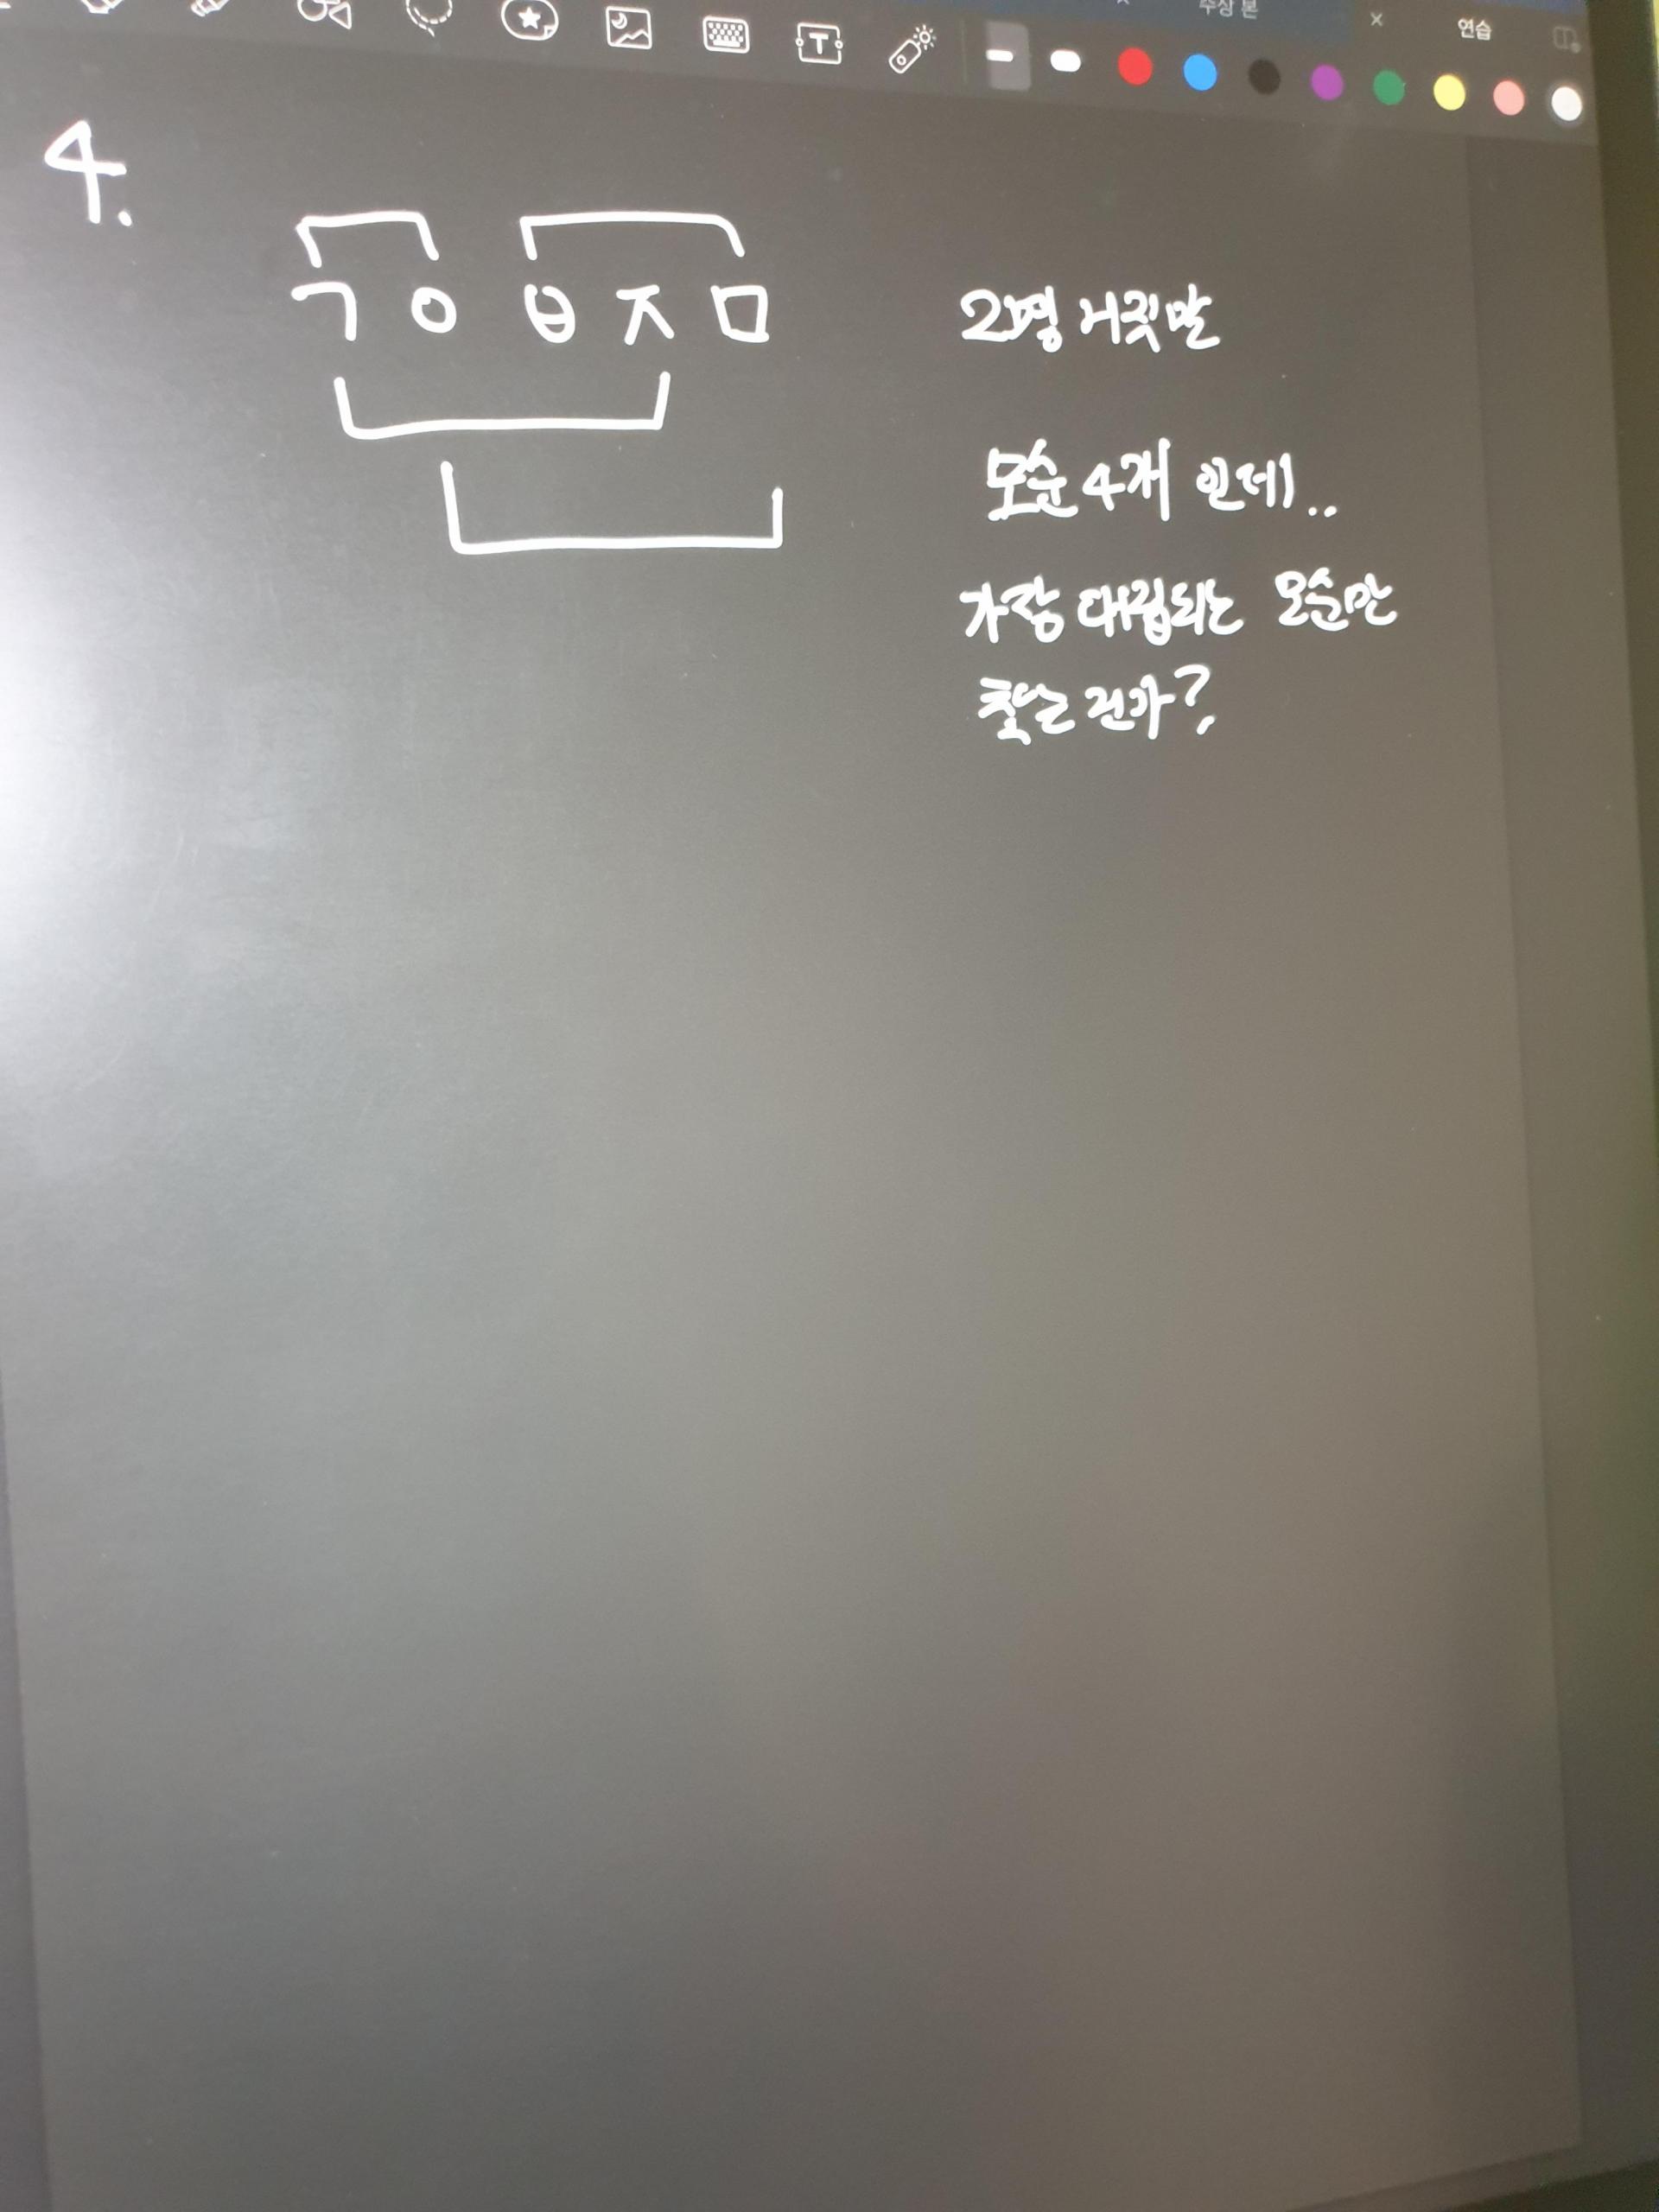 수상 본
연습
4.
ㄱ ㅇ ㅂ ㅈ ㅁ
2명 거짓말
모순 4개 인데..
가장 대립되는 모순만
찾는 건가?